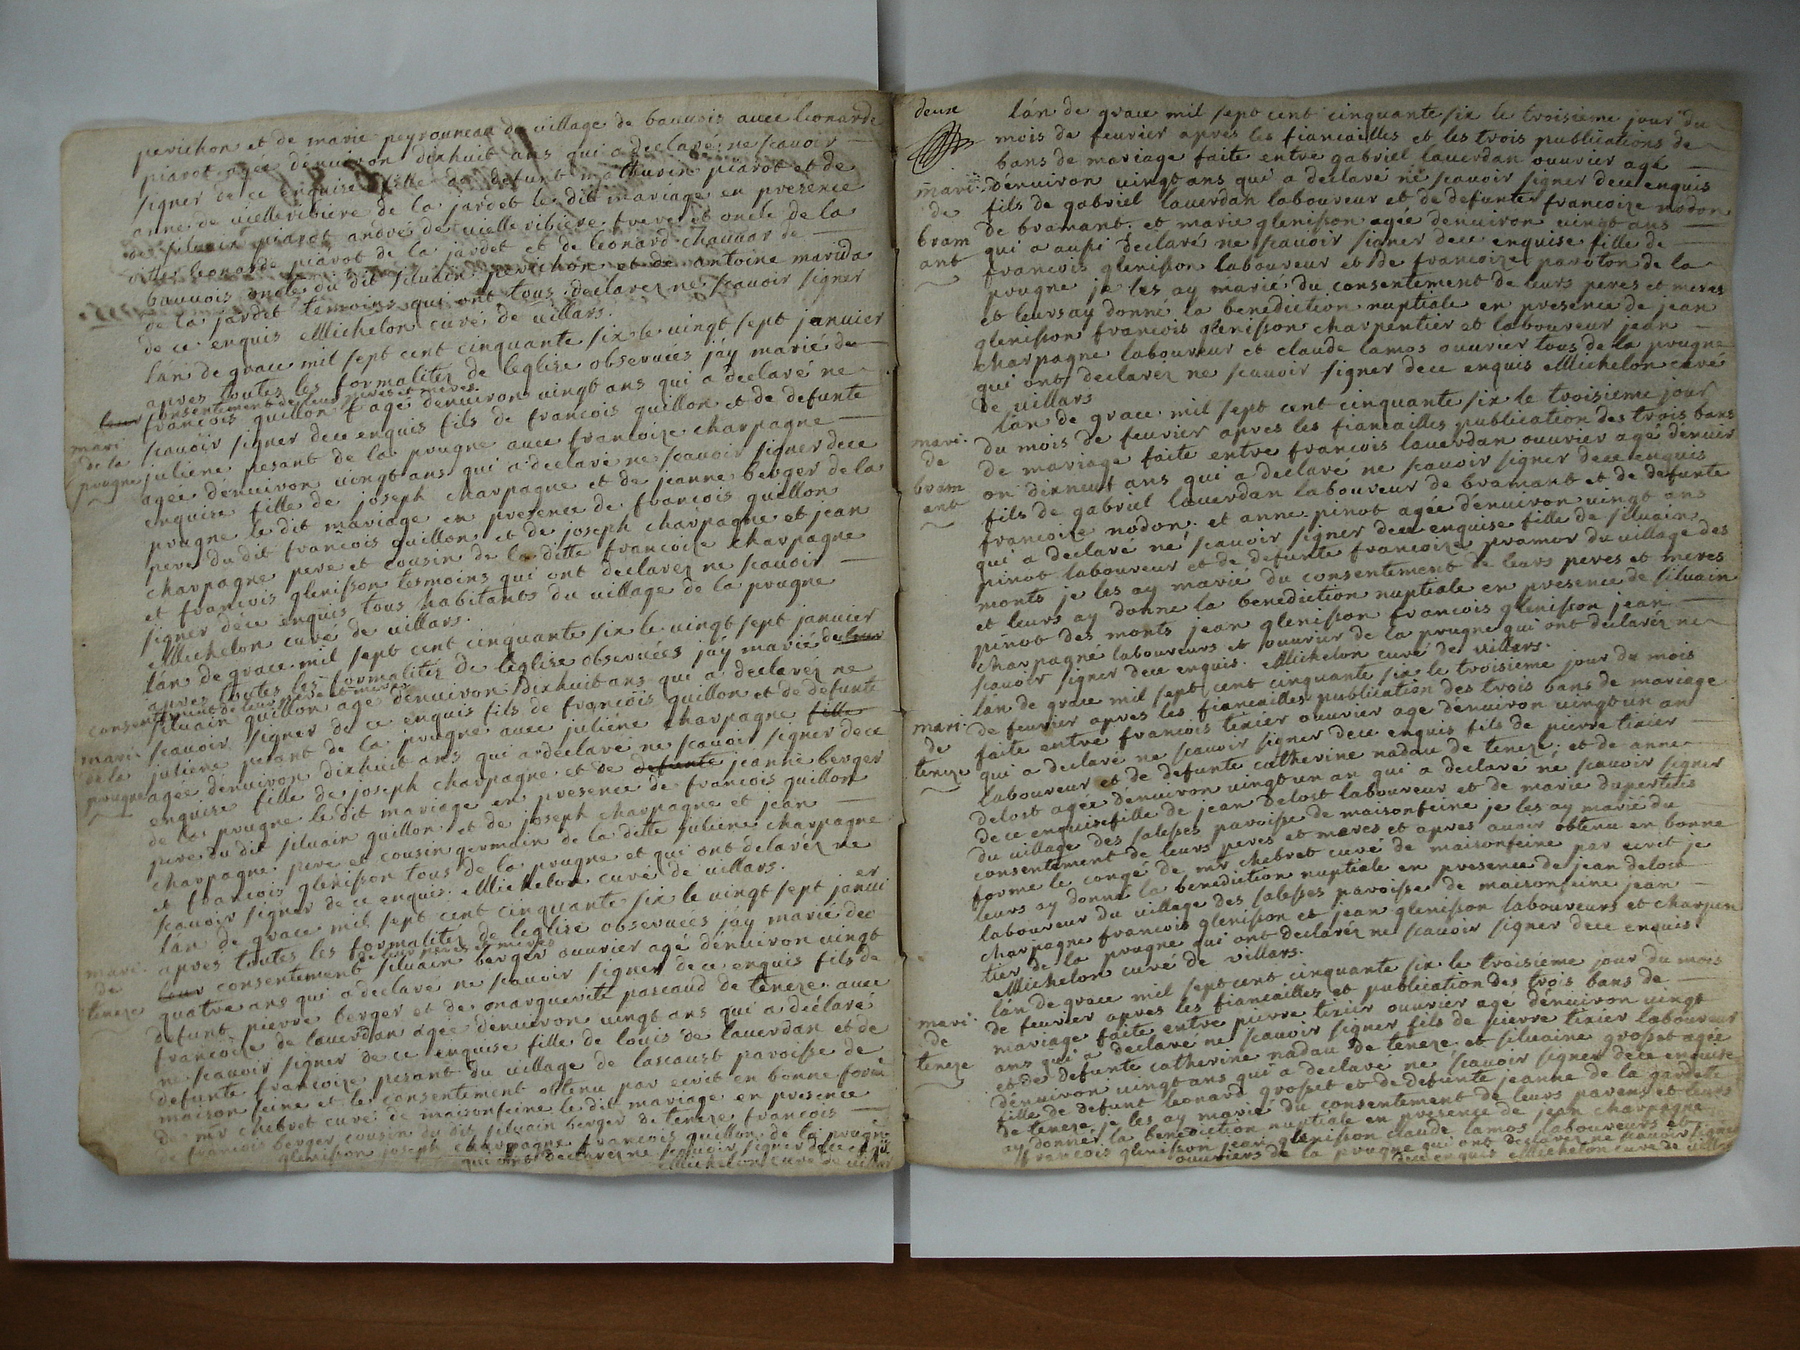 perichon et de marie peyrouneau du village de bauvois avec leonarde
piarot agée dénuiron dixhuit ans qui a declaré ne scavoir
signer de ce enquise fille de defunt mathurin piarot et de
anne de vielleribiere de la jardet le dit mariage en presence
de siluain piarot andré de vielle ribiere frere et oncle de la
ditte leonarde piarot de la jardet et de leonard chauuar de
bauuois oncle du dit siluain perichon et de antoine marida
de la jardet temoins qui ont tous declarez ne scavoir signer
de ce enquis Michelon curé de villars.
lán de grace mil sept cent cinquante six le vingt sept janvier
apres toutes les formalitez de leglise obseruées jáy marié du
consentement de leur peres et meres
leur francois quillon agé dénuiron vingt ans qui a declaré ne
mari: scavoir signer dece enquis fils de francois quillon et de defunte
de la juliene pesant de la prugne avec francoize charpagne
prugne agée dénuiron vingt ans qui a declaré ne scavoir signer dece
enquise fille de joseph charpagne et de jeanne berger de la
prugne le dit mariage en presence de francois quillon
pere du dit francois quillon et de joseph charpagne et jean
charpagne pere et cousin de la ditte francoize charpagne
et francois glenisson tesmoins qui ont declarez ne scavoir
signer dece enquis tous habitants du village de la prugne
Michelon curé de villars.
lán de grace mil sept cent cinquante six le vingt sept janvier
apres toutes les formalitez de léglise obseruées jáy marié de leur
consentement de leurs pere et mere
siluain quillon agé dénuiron dixhuit ans qui a declarez ne
mari: scavoir signer de ce enquis fils de francois quillon et de defunte
de la juliene pesant de la prugne avec juliéne charpagne fille
prugne agée dénuiron dixhuit ans qui a declaré ne scavoir signer dece
enquise fille de joseph charpagne et de defunte jeanne berger
de la prugne le dit mariage en presence de francois quillon
pere du dit siluain quillon et de joseph charpagne et jean
charpagne pere et cousin germain de la ditte juliene charpagne
et francois glenisson tous de la prugne et qui ont delaréz ne
scavoir signer de ce enquis. Michelon curé de villars.
lán de grace mil sept cent cinquante six le vingt sept janvier
apres toutes les formalitez de leglise obseruées jáy marié dec
de leur peres et meres
mari: leur consentement siluain berger ouvrier agé dénuiron vingt
de quatre ans qui a declaré ne scavoir signer de ce enquis fils de
teneze defunt pierre berger et de marguerite pascaud de téneze avec
francoize de lauerdan agée dénuiron vingt ans qui a déclaré
ne scavoir signer de ce enquise fille de louis de lauerdan et de
defunte francoize pesant du village de lascoust paroisse de
maison feine et le consentement obtenu par ecrit en bonne forme
de mr chebret curé de maisonfeine le dit mariage en presence
de francois berger cousin du dit siluain berger de teneze francois
glenisson joseph charpagne francois quillon de la prugne
qui ont declarez ne scavoir signer de ce enquis
Michelon curé de villars
deux
lán de grace mil sept cent cinquante six le troisieme jour du
mois de feurier apres les fiancailles et les trois publications de
bans de mariage faite entre gabriel lauerdan ouurier agé
mari: dénuiron vingt ans qui a declaré ne scavoir signer dece enquis
de fils de gabriel lauerdan laboureur et de defunte francoize nodon
bram de bramant. et marie glenisson agée dénuiron vingt ans
ant qui a aussi declaré ne scavoir signer dece enquise fille de
francois glenisson laboureur et de francoize paroton de la
prugne je les ay marié du consentement de leurs peres et meres
et leurs ay donné la benediction nuptiale en presence de jean
glenisson francois glenisson charpentier et laboureur jean
charpagne laboureur et claude lamos ouvrier tous de la prugne
qui ont declarez ne scavoir signer dece enquis Michelon curé
de villars
lán de grace mil sept cent cinquante six le troisieme jour
mari: du mois de feurier apres les fiancailles publication des trois bans
de de mariage faite entre francois lauerdan ouurier agé dénuir
bram on dixneuf ans qui a declaré ne scavoir signer dece enquis
ant fils de gabriel lauerdan laboureur de bramant et de defunte
francoize nodon. et anne pinot agée dénuiron vingt ans
qui a declaré ne scavoir signer dece enquise fille de siluain
pinot laboureur et de defunte francoize pramor du village des
monts je les ay marié du consentement de leurs peres et meres
et leurs ay donné la benediction nuptiale en presence de siluain
pinot des monts jean glenisson francois glenisson jean
charpagne laboureurs et ouurier de la prugne qui ont declaréz ne
scavoir signer dece enquis. Michelon curé de villars.
lan de grace mil sept cent cinquante six le troisieme jour du mois
mari: de feurier apres les fiancailles publication des trois bans de mariage
de faite entre francois tixier ouurier agé dénuiron vingt un an
teneze qui a declaré ne scavoir signer dece enquis fils de pierre tixier
laboureur et de defunte catherine nadau de teneze. et de anne
delost agée dénuiron vingt un an qui a declaré né scavoir signer
dece enquise fille de jean delost laboureur et de marie dupertuis
du village des salesses paroisse de maisonfeine je les ay marié du
consentement de leurs peres et meres et apres avoir obtenu en bonne
forme le congé de mr chebret curé de maisonfeine par ecrit je
leurs ay donné la benediction nuptiale en presence de jean delost
laboureur du village des salesses paroisse de maisonfeine jean
charpagne francois glenisson et jean glenisson laboureurs et charpen
tier de la prugne qui ont declaréz ne scavoir signer dece enquis.
Michelon curé de villars.
lán de grace mil sept cent cinquante six le troisieme jour du mois
mari: de feurier apres les fiancailles et publication des trois bans de
de mariage faite entre pierre tixier ouurier agé dénuiron vingt
teneze ans qui a declaré ne scavoir signer fils de pierre tixier laboureur
et de defunte catherine nadau de teneze et siluaine grosset agée
dénuiron vingt ans qui a declaré ne scavoir signer dece enquise
fille de defunt leonard grosset et de defunte jeanne de la gardette
de teneze je les ay marié du consentement de leurs parens et leurs
ay donner la benediction nuptiale en presence de jean charpagne
francois glenisson jean glenisson claude lamos laboureurs et
ouuriers de la prugne qui ont declarez ne scavoir signer
dece enquis Michelon curé de villars